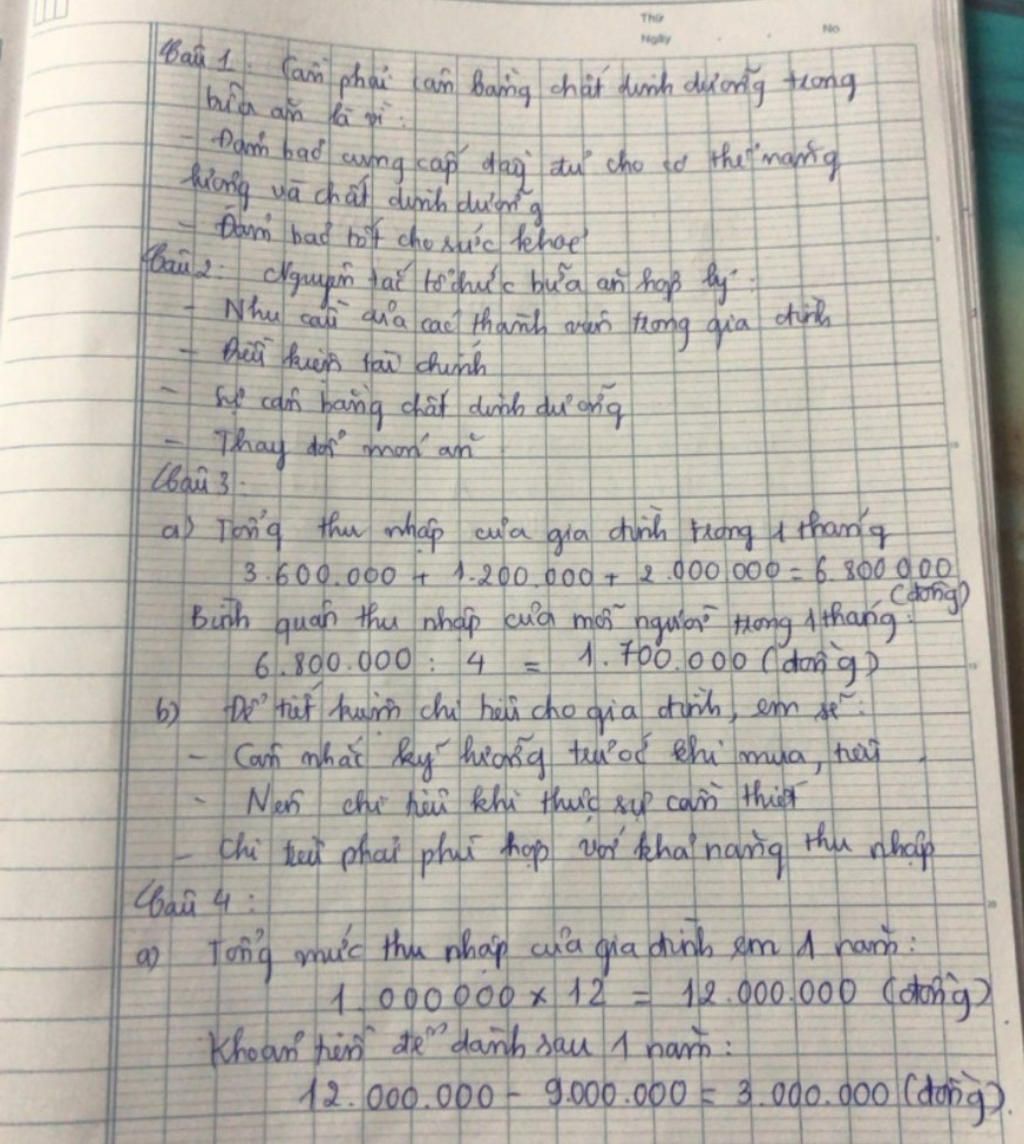 Thứ
Ngày
No
Câu 1: Cần phải cân bằng chất dinh dưỡng trong
bữa ăn là vì:
- Đảm bảo cung cấp đầy đủ cho cơ thể năng
lượng và chất dinh dưỡng
- Đảm bảo tốt cho sức khoẻ
Câu 2: Nguyên tắc tổ chức bữa ăn hợp lý:
- Nhu cầu của các thành viên trong gia đình
- Điều kiện tài chính
- Sự cân bằng chất dinh dưỡng
- Thay đổi món ăn
Câu 3:
a) Tổng thu nhập của gia đình trong 1 tháng
3.600.000 + 1.200.000 + 2.000.000 = 6.800.000
(đồng)
Bình quân thu nhập của mỗi người trong 1 tháng:
6.800.000 : 4 = 1.700.000 (đồng)
b) Để tiết kiệm chi tiêu cho gia đình, em sẽ:
- Cân nhắc kỹ lưỡng trước khi mua, tiêu
- Nên chi tiêu khi thực sự cần thiết
- Chi tiêu phải phù hợp với khả năng thu nhập
Câu 4:
a) Tổng mức thu nhập của gia đình em 1 năm:
1.000.000 x 12 = 12.000.000 (đồng)
Khoản tiền để dành sau 1 năm:
12.000.000 - 9.000.000 = 3.000.000 (đồng).